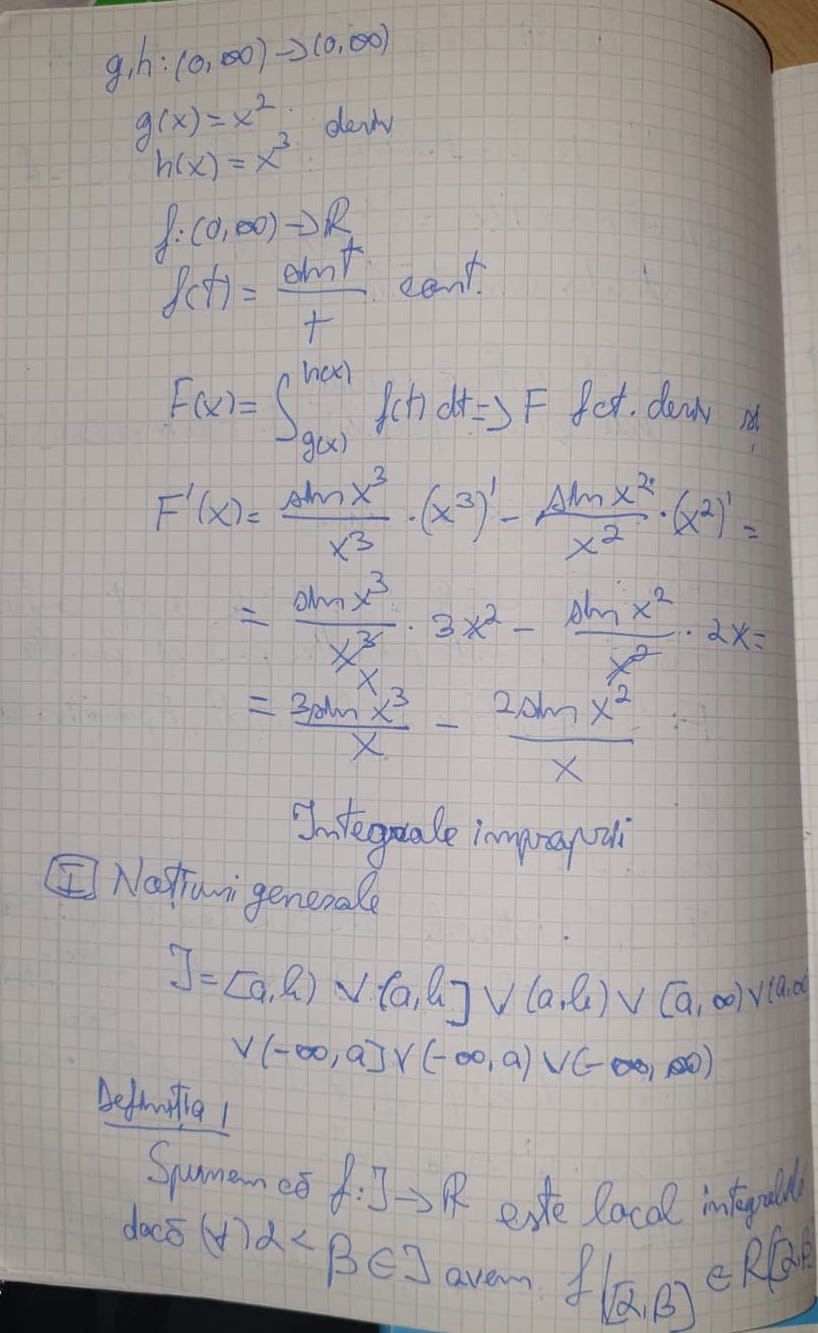 g,h : (0, ∞) → (0, ∞)
g(x) = x² deriv
h(x) = x³
f : (0, ∞) → R
f(t) = sin t / t cont.
F(x) = ∫_{g(x)}^{h(x)} f(t) dt => F fct. deriv și
F'(x) = sin x³ / x³ · (x³)' - sin x² / x² · (x²)' =
= sin x³ / x³ · 3x² - sin x² / x² · 2x =
x
= 3 sin x³ / x - 2 sin x² / x
Integrale improprii
I Noțiuni generale
J = [a, b) ∨ (a, b] ∨ (a, b) ∨ [a, ∞) ∨ (a, ∞
∨ (-∞, a] ∨ (-∞, a) ∨ (-∞, ∞)
Definiția 1
Spunem că f : J → R este local integrabilă
dacă (∀) α < β ∈ J avem f|[α, β] ∈ R[α, β]